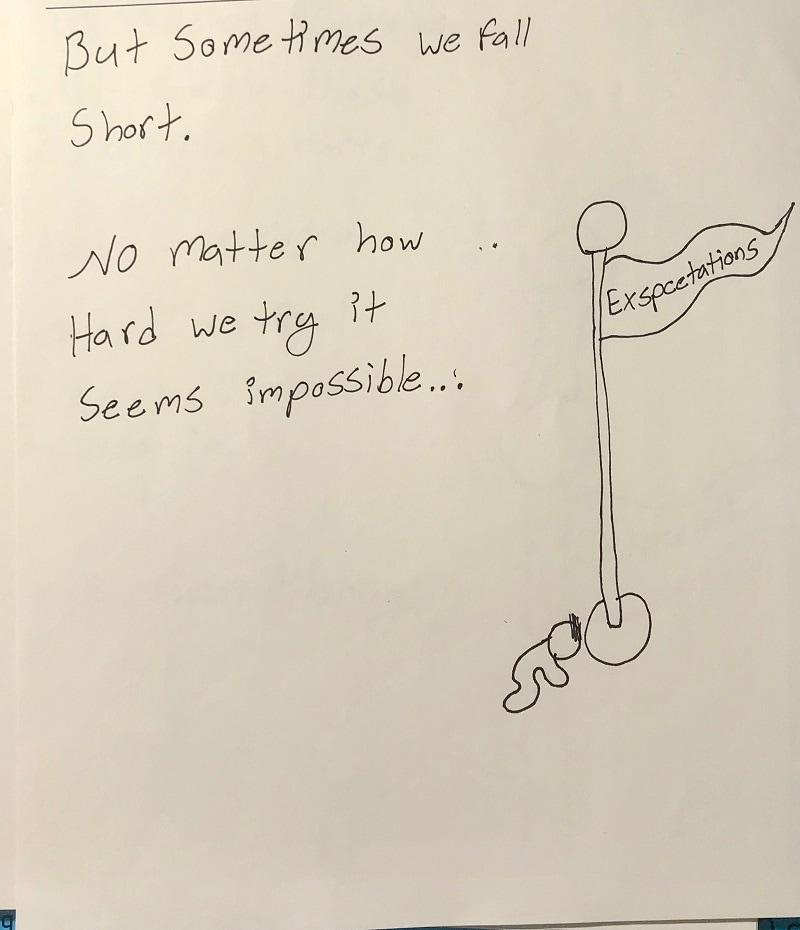 But Sometimes we fall
Short.
No matter how ..
Hard we try it
Seems impossible...
Exspcetations